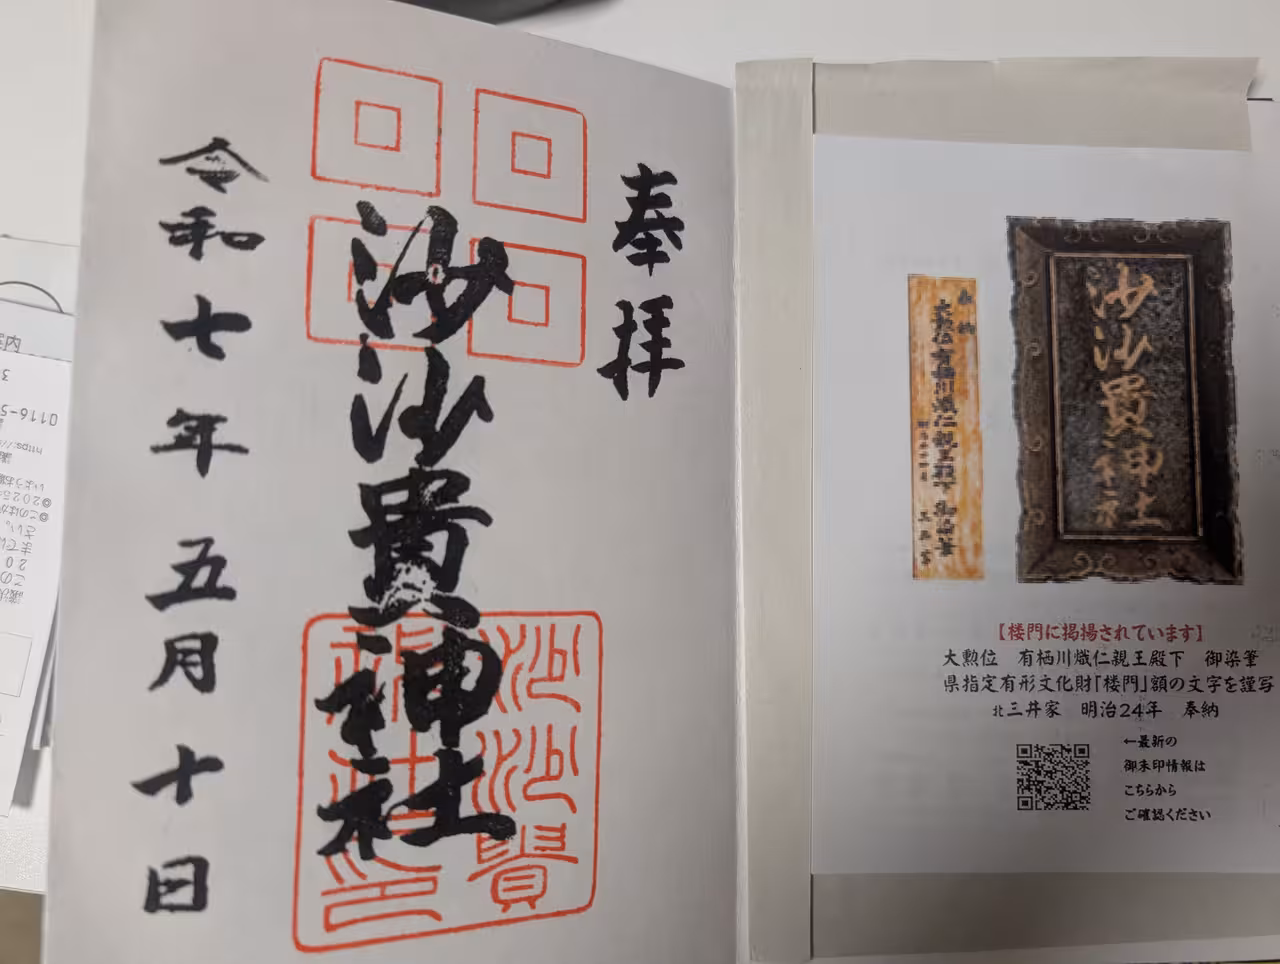 奉拝
沙沙貴神社
令和七年五月十日
沙沙貴神社
奉納
大勲位有栖川熾仁親王殿下御染筆
三井家
【楼門に掲揚されています】
大勲位 有栖川熾仁親王殿下 御染筆
県指定有形文化財「楼門」額の文字を謹写
北三井家 明治24年 奉納
←最新の
御朱印情報は
こちらから
ご確認ください
案内
0116-5
https:/